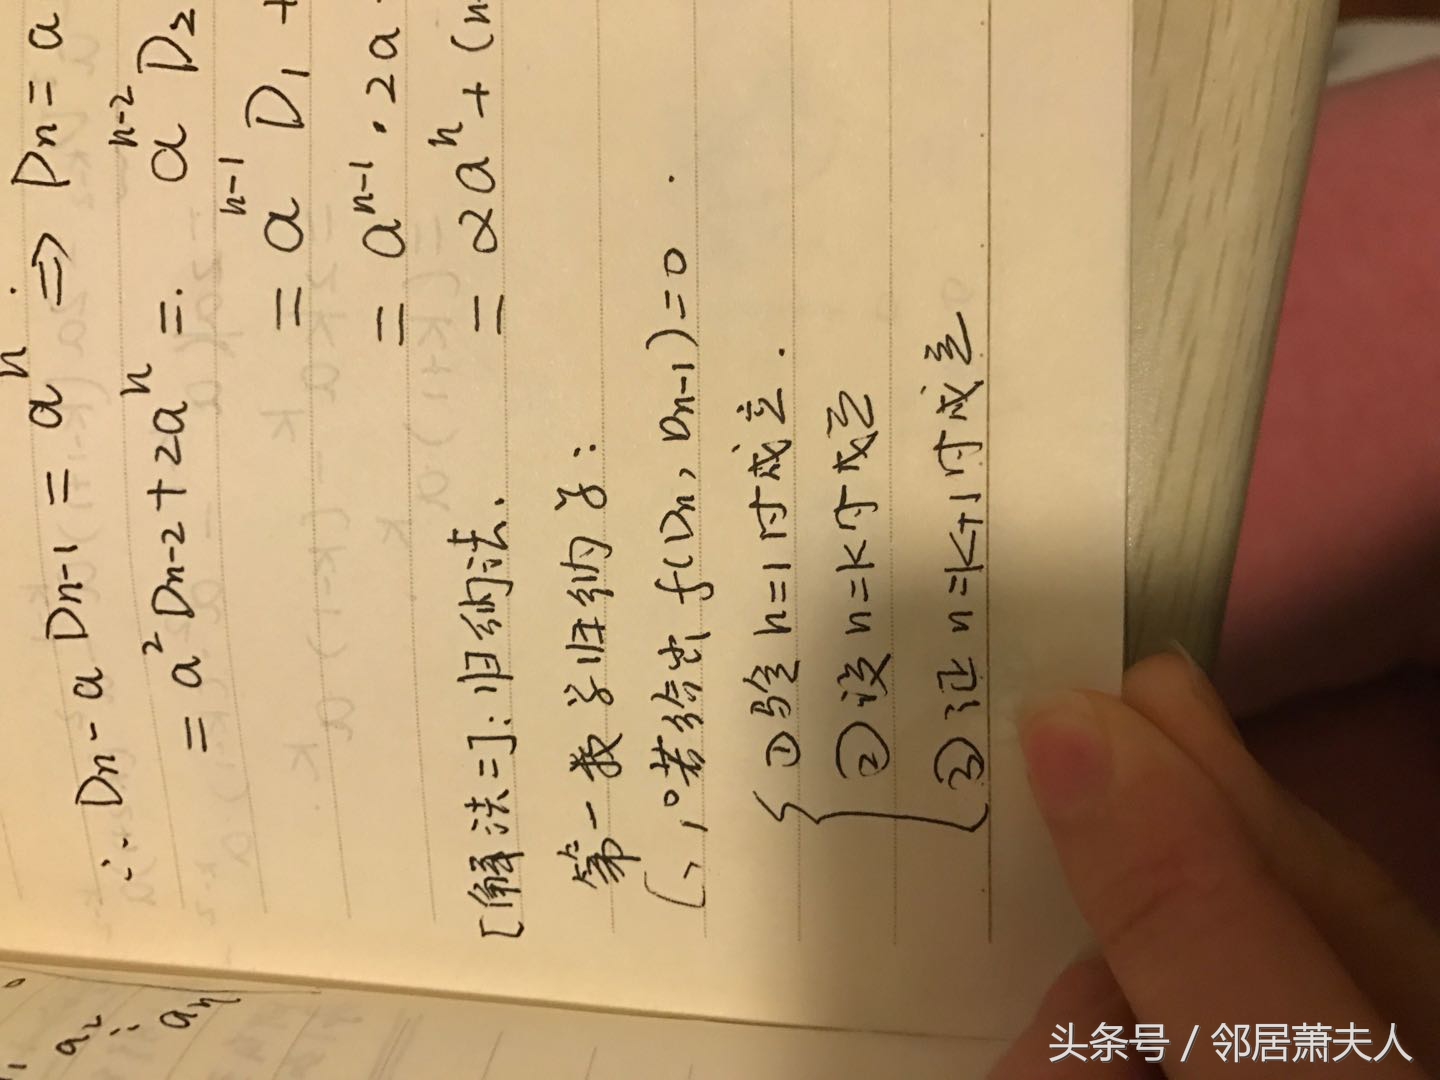 ∴ Dn - a Dn-1 = aⁿ ⇒ Dn = a
= a² Dn-2 + 2aⁿ = … aⁿ⁻² D₂
= aⁿ⁻¹ D₁ +
= aⁿ⁻¹ · 2a
= 2aⁿ + (n
[解法二]: 归纳法.
第一数学归纳法:
1° 若给出 f(Dn, Dn-1)=0 .
①验 n=1时成立.
②设 n=K时成立
③证 n=K+1时成立
a₂
⋮
an
头条号 / 邻居萧夫人